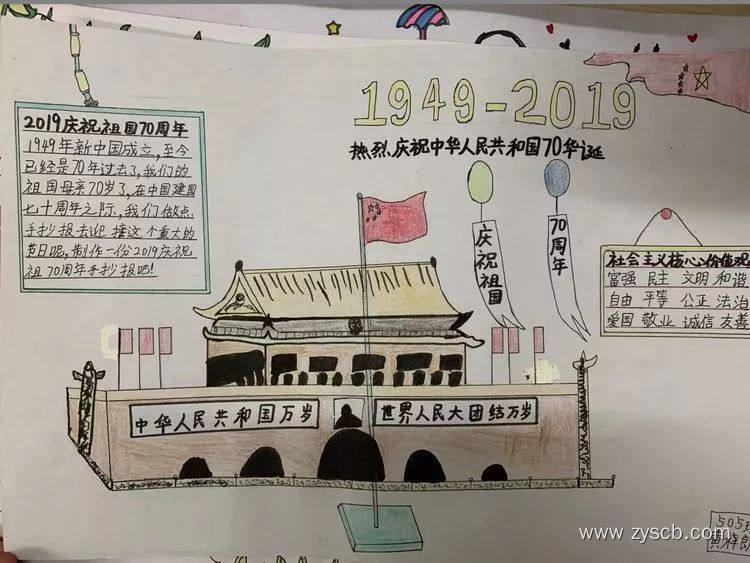 1949-2019
热烈庆祝中华人民共和国70华诞
2019庆祝祖国70周年
1949年新中国成立,至今
已经是70年过去了,我们的
祖国母亲70岁了,在中国建国
七十周年之际,我们做点
手抄报去迎接这个重大的
节日呢,制作一份2019庆祝
祖70周年手抄报吧!
庆祝祖国
70周年
社会主义核心价值观
富强 民主 文明 和谐
自由 平等 公正 法治
爱国 敬业 诚信 友善
中华人民共和国万岁
世界人民大团结万岁
505
www.zyscb.com